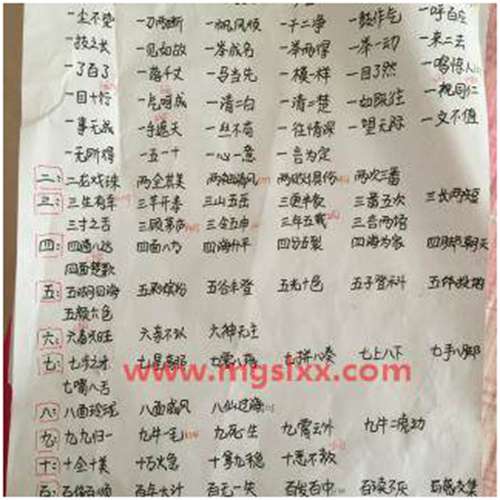 一尘不染 一刀两断 一帆风顺 一干二净 一鼓作气 一呼百应
一技之长 一见如故 一举成名 一举两得 一举一动 一来二去
一了百了 一落千丈 一马当先 一模一样 一目了然 一鸣惊人
一目十行 一气呵成 一清二白 一清二楚 一如既往 一视同仁
一事无成 一手遮天 一丝不苟 一往情深 一望无际 一文不值
一无所得 一五一十 一心一意 一言为定
二: 二龙戏珠 两全其美 两袖清风 两败俱伤 两次三番
三: 三生有幸 三羊开泰 三山五岳 三更半夜 三番五次 三长两短
三寸之舌 三顾茅庐 三令五申 三年五载 三言两语
四: 四通八达 四面八方 四海升平 四分五裂 四海为家 四脚朝天
四面楚歌
五: 五湖四海 五彩缤纷 五谷丰登 五光十色 五子登科 五体投地
五颜六色
六: 六畜兴旺 六亲不认 六神无主
七: 七步之才 七拼八凑 七上八下 七手八脚
www.mgslxx.com
七嘴八舌
八: 八面玲珑 八面威风 八仙过海
九: 九九归一 九牛一毛 九死一生 九霄云外 九牛二虎功
十: 十全十美 十万火急 十拿九稳 十恶不赦
百: 百依百顺 百年大计 百发百中